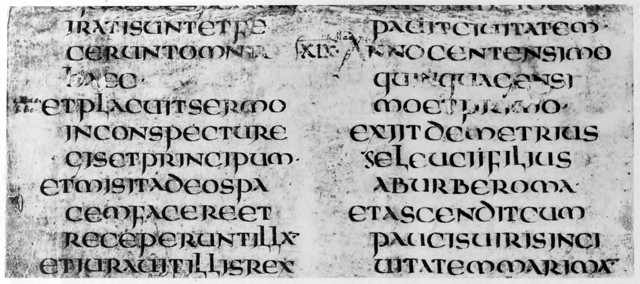 IRATISUNTETFE
CERUNTOMNIA
HAEC·
ETPLACUITSERMO
INCONSPECTURE
GISETPRINCIPUM·
ETMISITADEOSPA
CEMFACEREET
RECEPERUNTILLA·
ETIURAUITILLISREX
PAUITCIUITATEM·
XIX· ANNOCENTENSIMO
QUINQUAGENSI
MOETPRIMO·
EXIITDEMETRIUS
SELEUCIIFILIUS
ABURBEROMA·
ETASCENDITCUM
PAUCISUIRISINCI
UITATEMMARIMA·